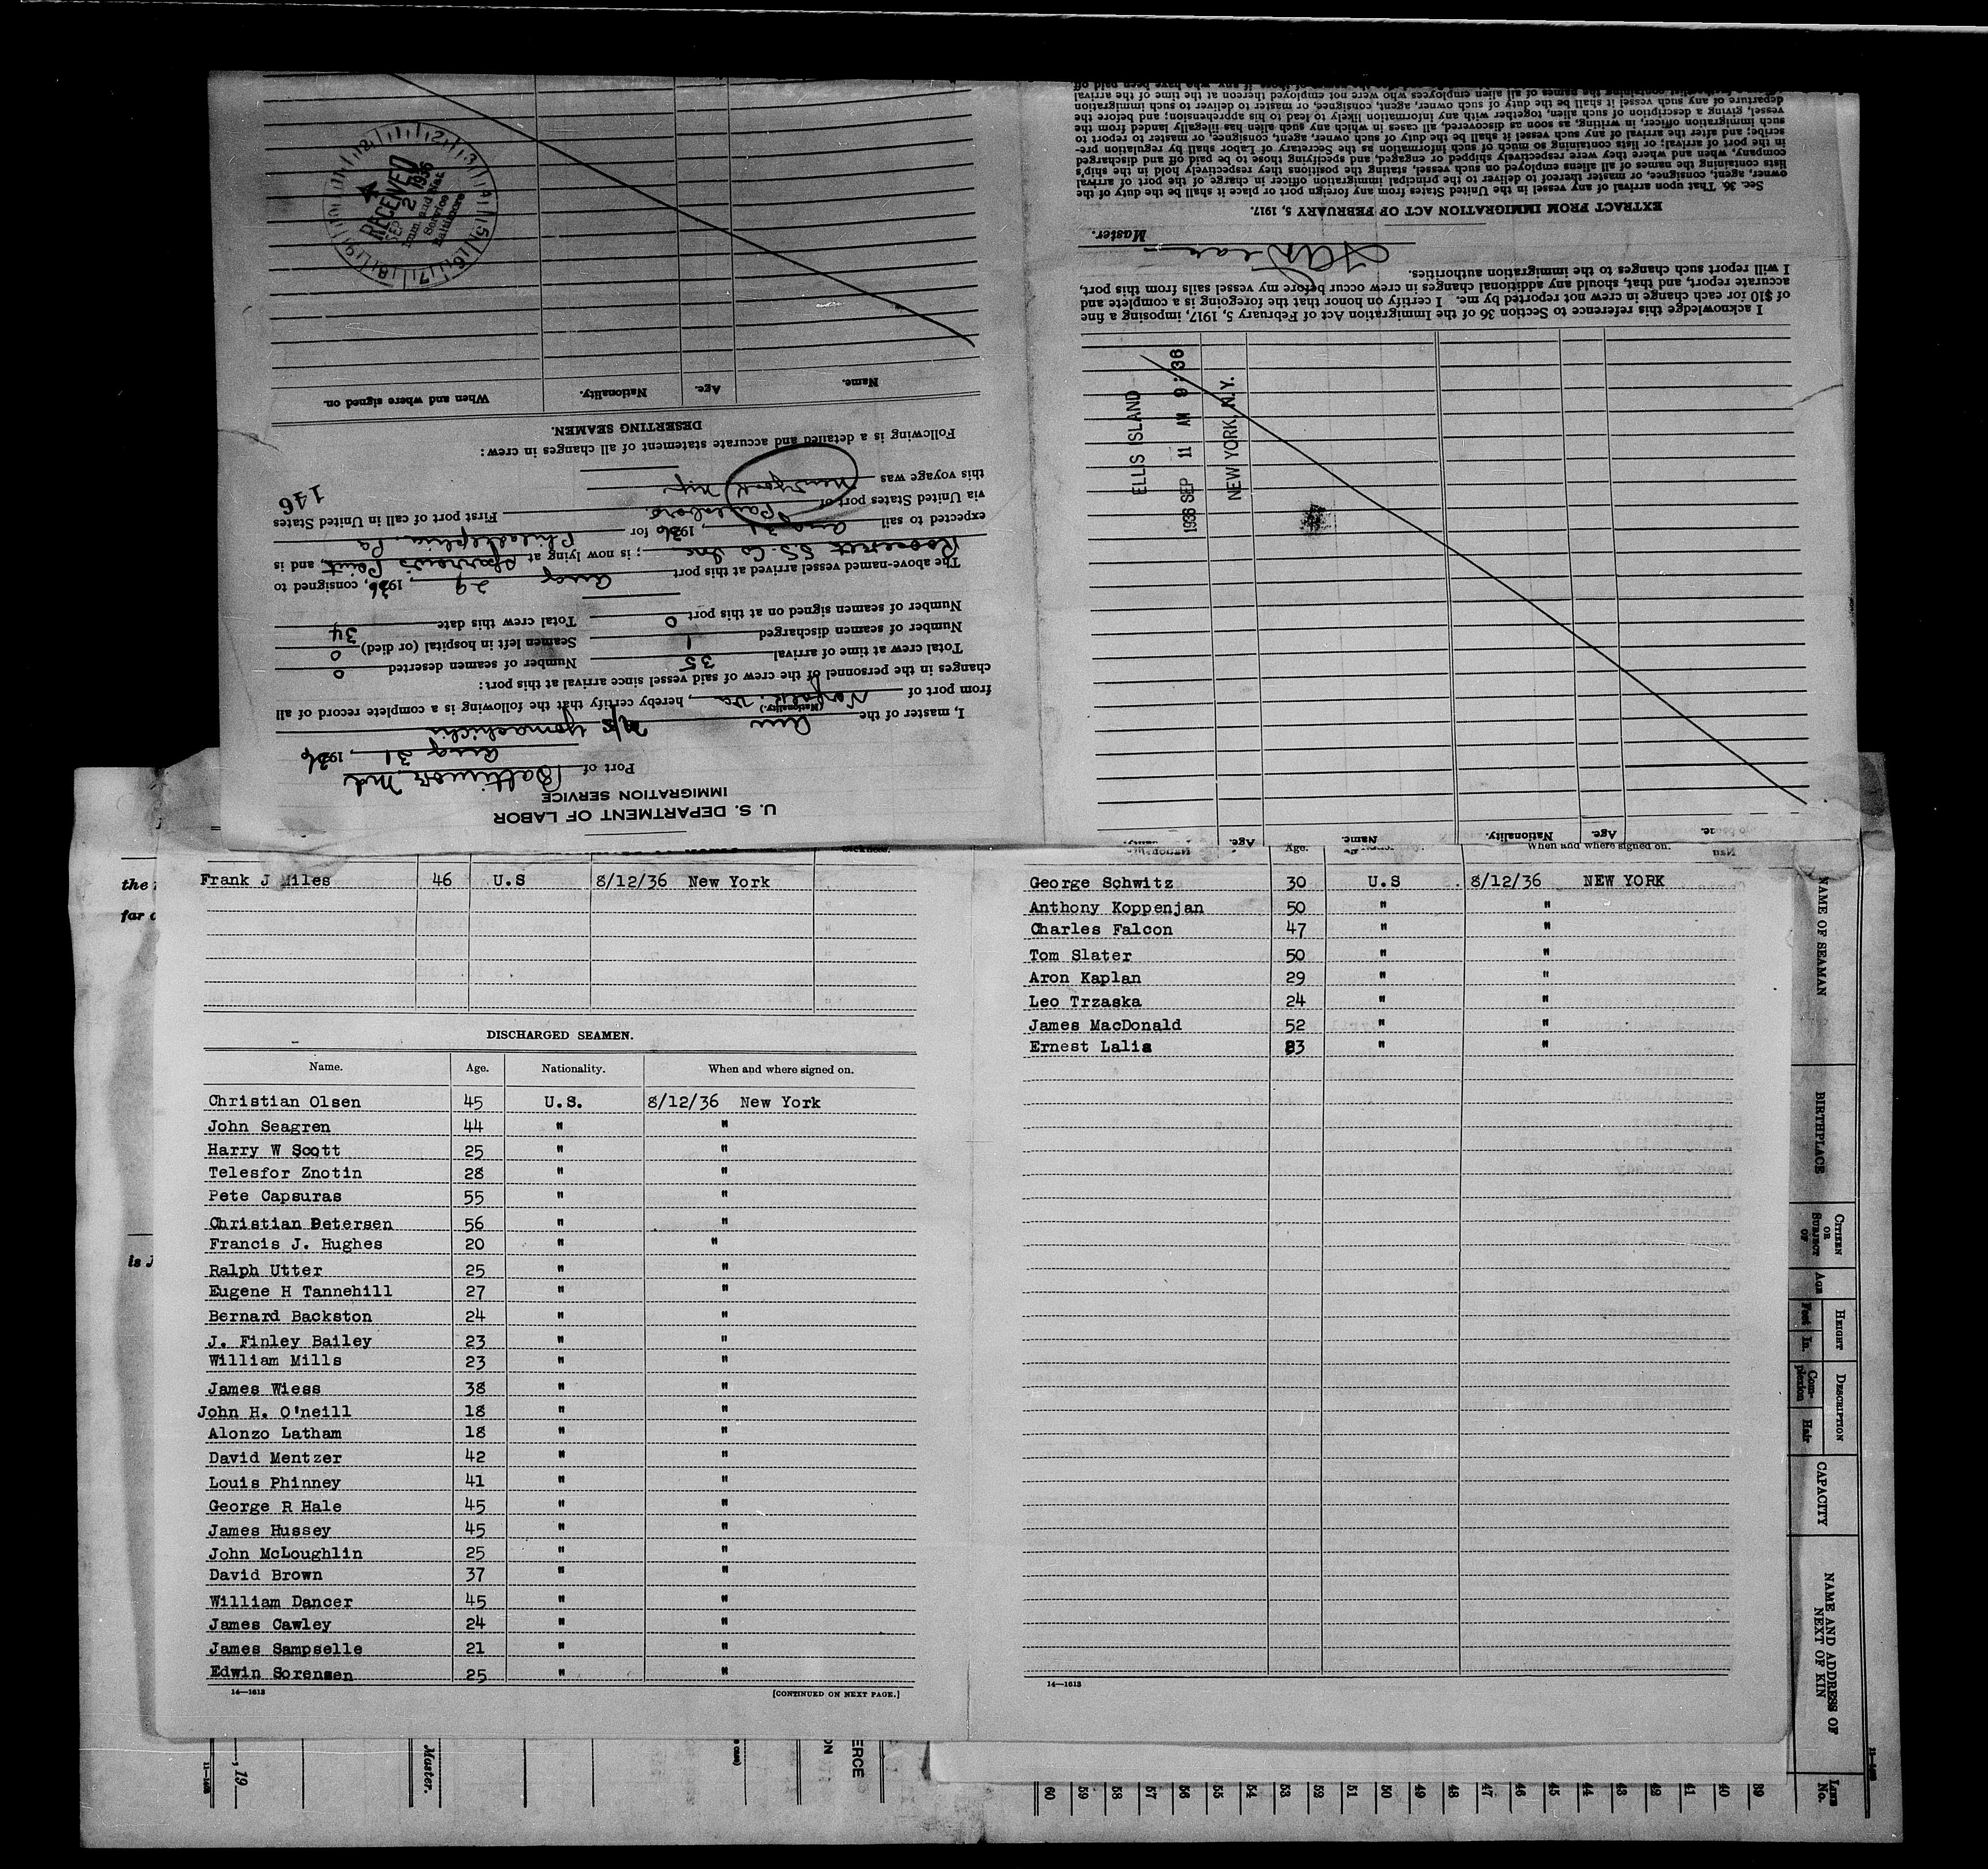 U. S. DEPARTMENT OF LABOR
IMMIGRATION SERVICE
Port of Baltimore Md
Aug 31, 1936
I, master of the Am M/S Yomachichi
(Nationality.)
from port of Norfolk. Va, hereby certify that the following is a complete record of all
changes in the personnel of the crew of said vessel since arrival at this port:
Total crew at time of arrival 35 Number of seamen deserted 0
Number of seamen discharged 1 Seamen left in hospital (or died) 0
Number of seamen signed on at this port 0 Total crew this date 34
The above-named vessel arrived at this port Aug 29, 1936, consigned to
Roosevelt S.S. Co Inc; is now lying at Sparrows Point, and is
expected to sail Aug 31, 1936 for Philadelphia, Pa
via United States port of First port of call in United States
this voyage was New York N.Y. 146
Following is a detailed and accurate statement of all changes in crew:
DESERTING SEAMEN.
Name. Age. Nationality. When and where signed on.
RECEIVED
SEP 2 1936
Imm. and Nat.
Service
Baltimore
Name. Age. Nationality.
ELLIS ISLAND
1936 SEP 11 AM 9:36
NEW YORK, N.Y.
I acknowledge this reference to Section 36 of the Immigration Act of February 5, 1917, imposing a fine
of $10 for each change in crew not reported by me. I certify on honor that the foregoing is a complete and
accurate report, and that, should any additional changes in crew occur before my vessel sails from this port,
I will report such changes to the immigration authorities.
Master.
EXTRACT FROM IMMIGRATION ACT OF FEBRUARY 5, 1917.
Sec. 36. That upon arrival of any vessel in the United States from any foreign port or place it shall be the duty of the
owner, agent, consignee, or master thereof to deliver to the principal immigration officer in charge of the port of arrival
lists containing the names of all aliens employed on such vessel, stating the positions they respectively hold in the ship's
company, when and where they were respectively shipped or engaged, and specifying those to be paid off and discharged
in the port of arrival; or lists containing so much of such information as the Secretary of Labor shall by regulation pre-
scribe; and after the arrival of any such vessel it shall be the duty of such owner, agent, consignee, or master to report to
such immigration officer, in writing, as soon as discovered, all cases in which any such alien has illegally landed from the
vessel, giving a description of such alien, together with any information likely to lead to his apprehension; and before the
departure of any such vessel it shall be the duty of such owner, agent, consignee, or master to deliver to such immigration
officer a further list containing the names of all alien employees who were not employed thereon at the time of the arrival
Frank J Miles 46 U.S 8/12/36 New York
DISCHARGED SEAMEN.
Name. Age. Nationality. When and where signed on.
Christian Olsen 45 U.S. 8/12/36 New York
John Seagren 44 " "
Harry W Scott 25 " "
Telesfor Znotin 28 " "
Pete Capsuras 55 " "
Christian Petersen 56 " "
Francis J. Hughes 20 " "
Ralph Utter 25 " "
Eugene H Tannehill 27 " "
Bernard Backston 24 " "
J. Finley Bailey 23 " "
William Mills 23 " "
James Wiess 38 " "
John H. O'neill 18 " "
Alonzo Latham 18 " "
David Mentzer 42 " "
Louis Phinney 41 " "
George R Hale 45 " "
James Hussey 45 " "
John McLoughlin 25 " "
David Brown 37 " "
William Dancer 45 " "
James Cawley 24 " "
James Sampselle 21 " "
Edwin Sorensen 25 " "
14—1613 [CONTINUED ON NEXT PAGE.]
Age. When and where signed on.
George Schwitz 30 U.S 8/12/36 NEW YORK
Anthony Koppenjan 50 " "
Charles Falcon 47 " "
Tom Slater 50 " "
Aron Kaplan 29 " "
Leo Trzaska 24 " "
James MacDonald 52 " "
Ernest Lalis 23 " "
14—1613
NAME OF SEAMAN
BIRTHPLACE
CITIZEN OR SUBJECT OF
AGE
HEIGHT
Feet In.
DESCRIPTION
Complexion Hair
CAPACITY
NAME AND ADDRESS OF NEXT OF KIN
LINE No.
39 40 41 42 43 44 45 46 47 48 49 50 51 52 53 54 55 56 57 58 59 60
, 19
Master.